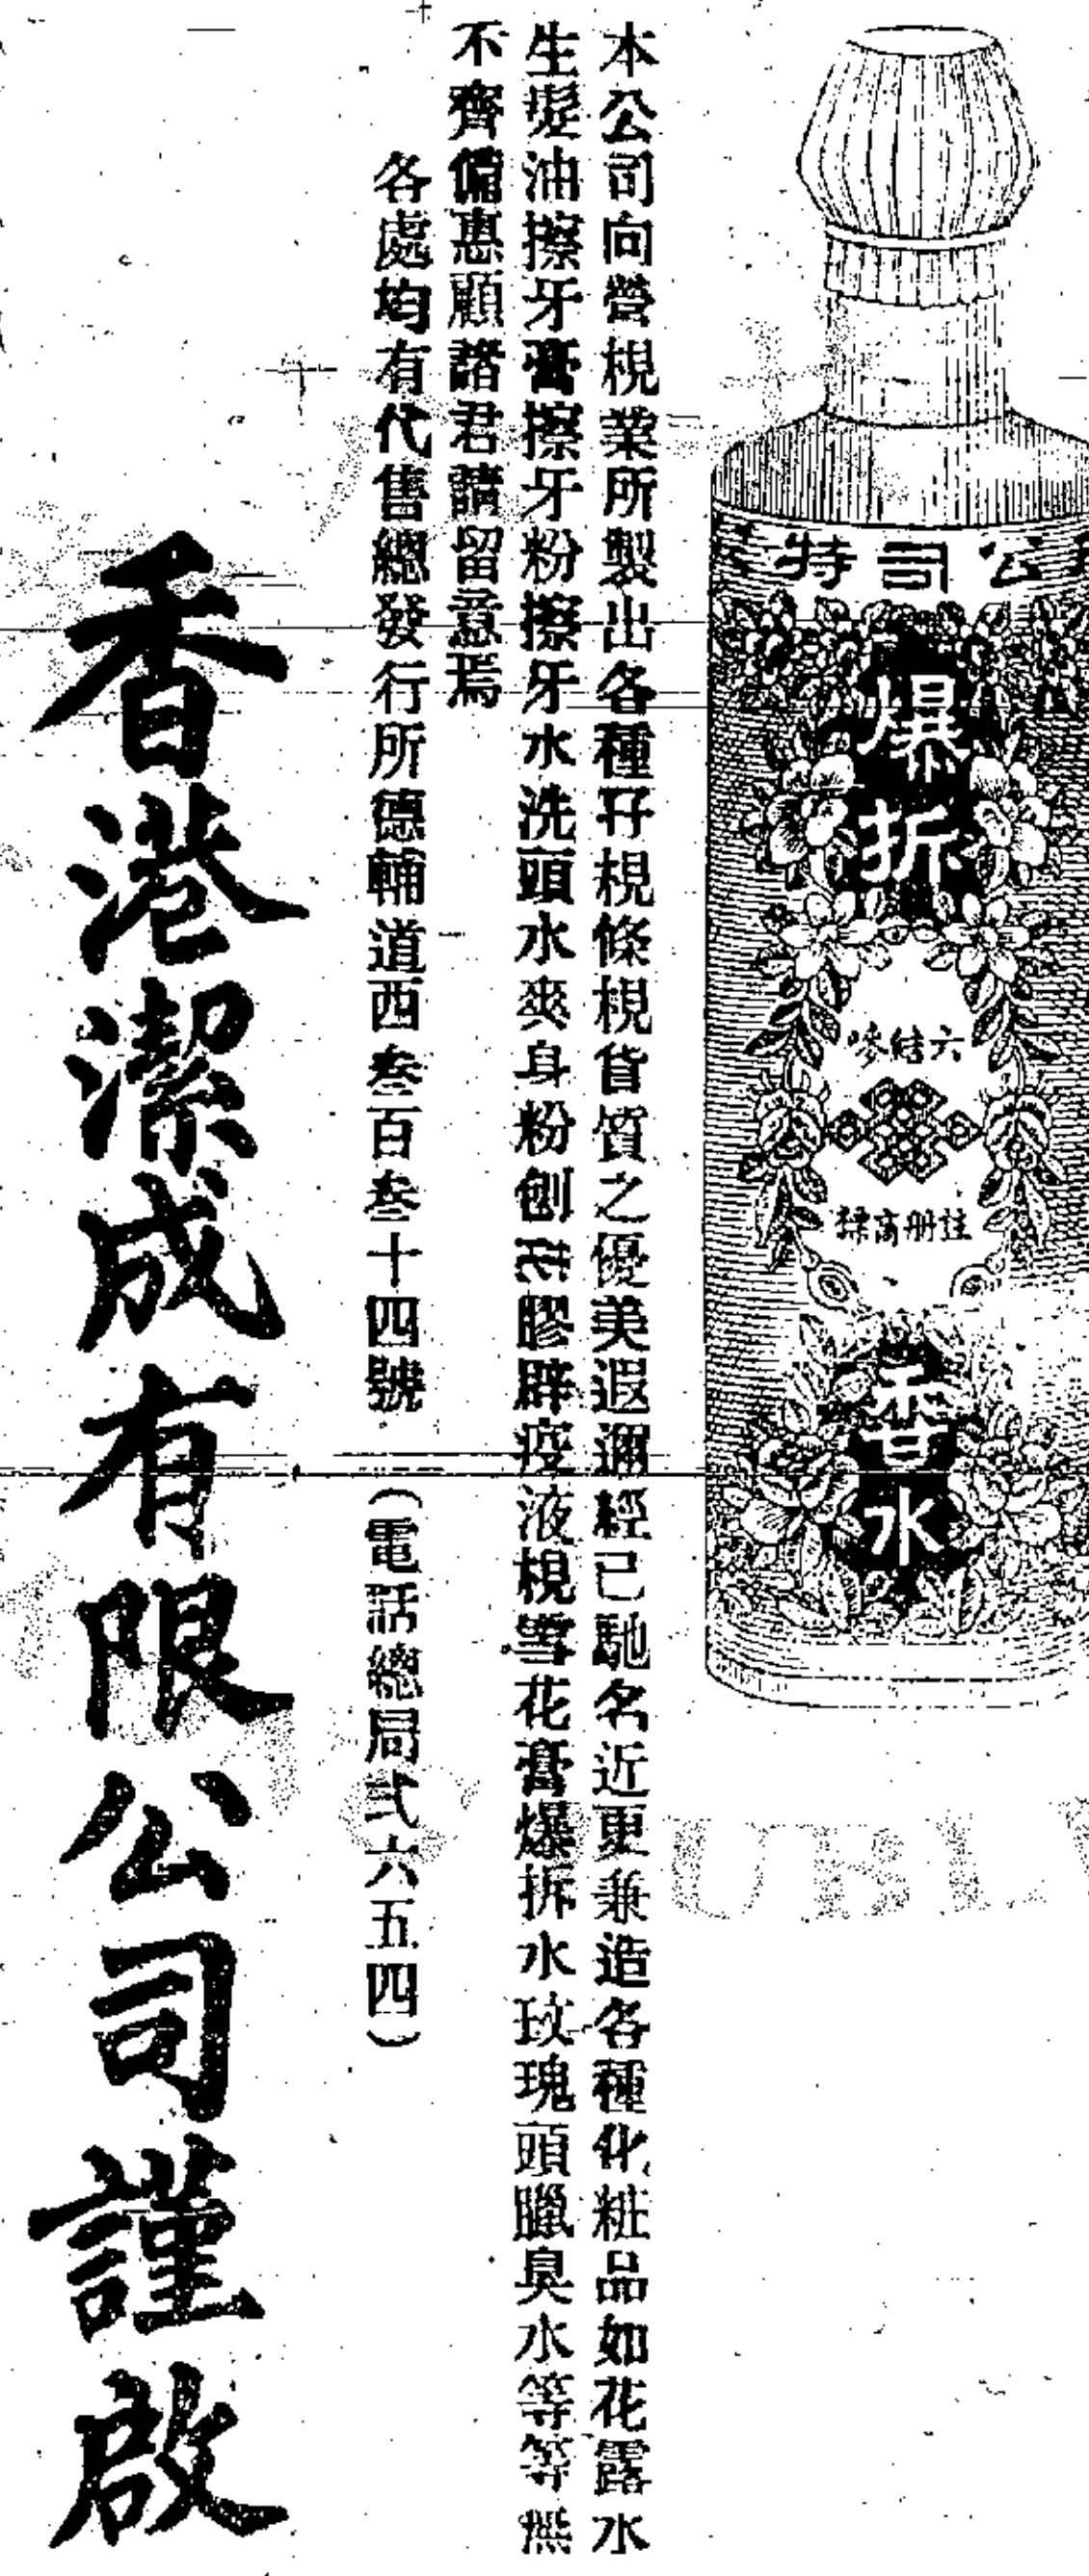 公司特
爆拆
六結嘜
註册商標
香水
本公司向營梘業所製出各種孖梘條梘貨質之優美遐邇經已馳名近更兼造各種化粧品如花露水
生髮油擦牙膏擦牙粉擦牙水洗頭水爽身粉刨花膠辟疫液梘雪花膏爆拆水玫瑰頭臘臭水等等無
不齊備惠顧諸君請留意焉
各處均有代售總發行所德輔道西叁百叁十四號（電話總局弍六五四）
香港潔成有限公司謹啟